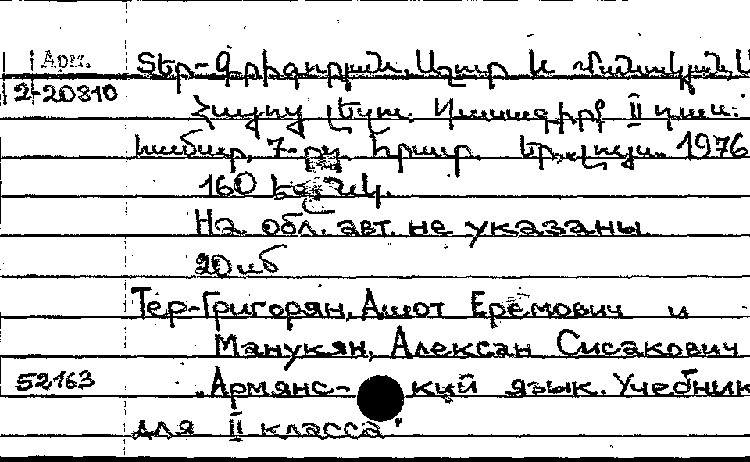 Арм. Տեր-Գրիգորյան, Աշոտ և Մանուկյան, Ա
2-20810 Հայոց լեզու. Դասագիրք II դաս.
համար. 7-րդ հրատ. Եր., Լույս. 1976
160 էջ, նկ.
На обл. авт. не указаны.
20 ub
Тер-Григорян, Ашот Еремович и
Манукян, Алексан Сисакович
52163 "Армянс- кий язык. Учебник
для II класса"